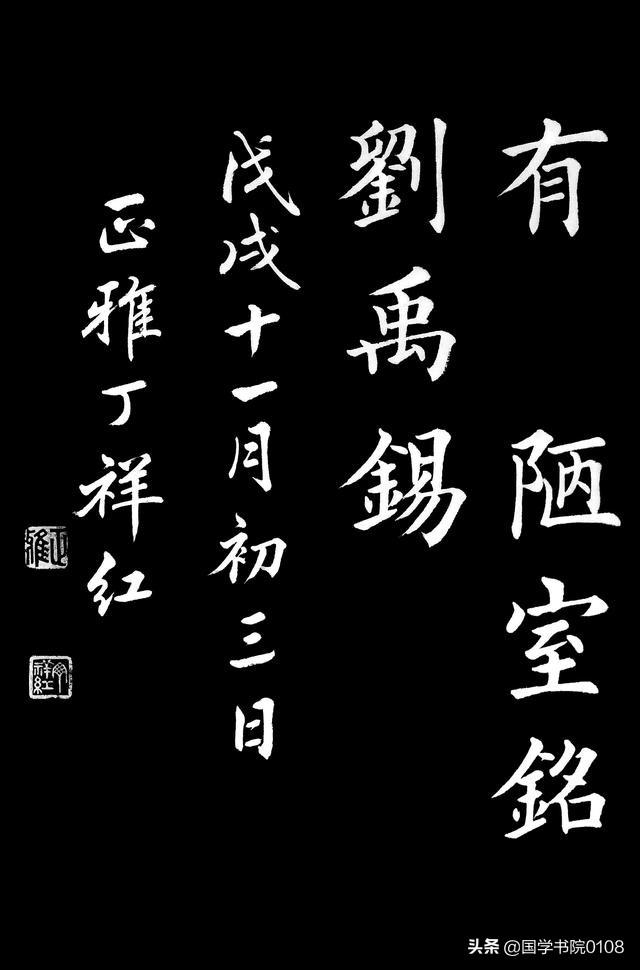 有 陋室銘
劉禹錫
戊戌十一月初三日
正雅丁祥红
正雅
祥红
头条 @国学书院0108